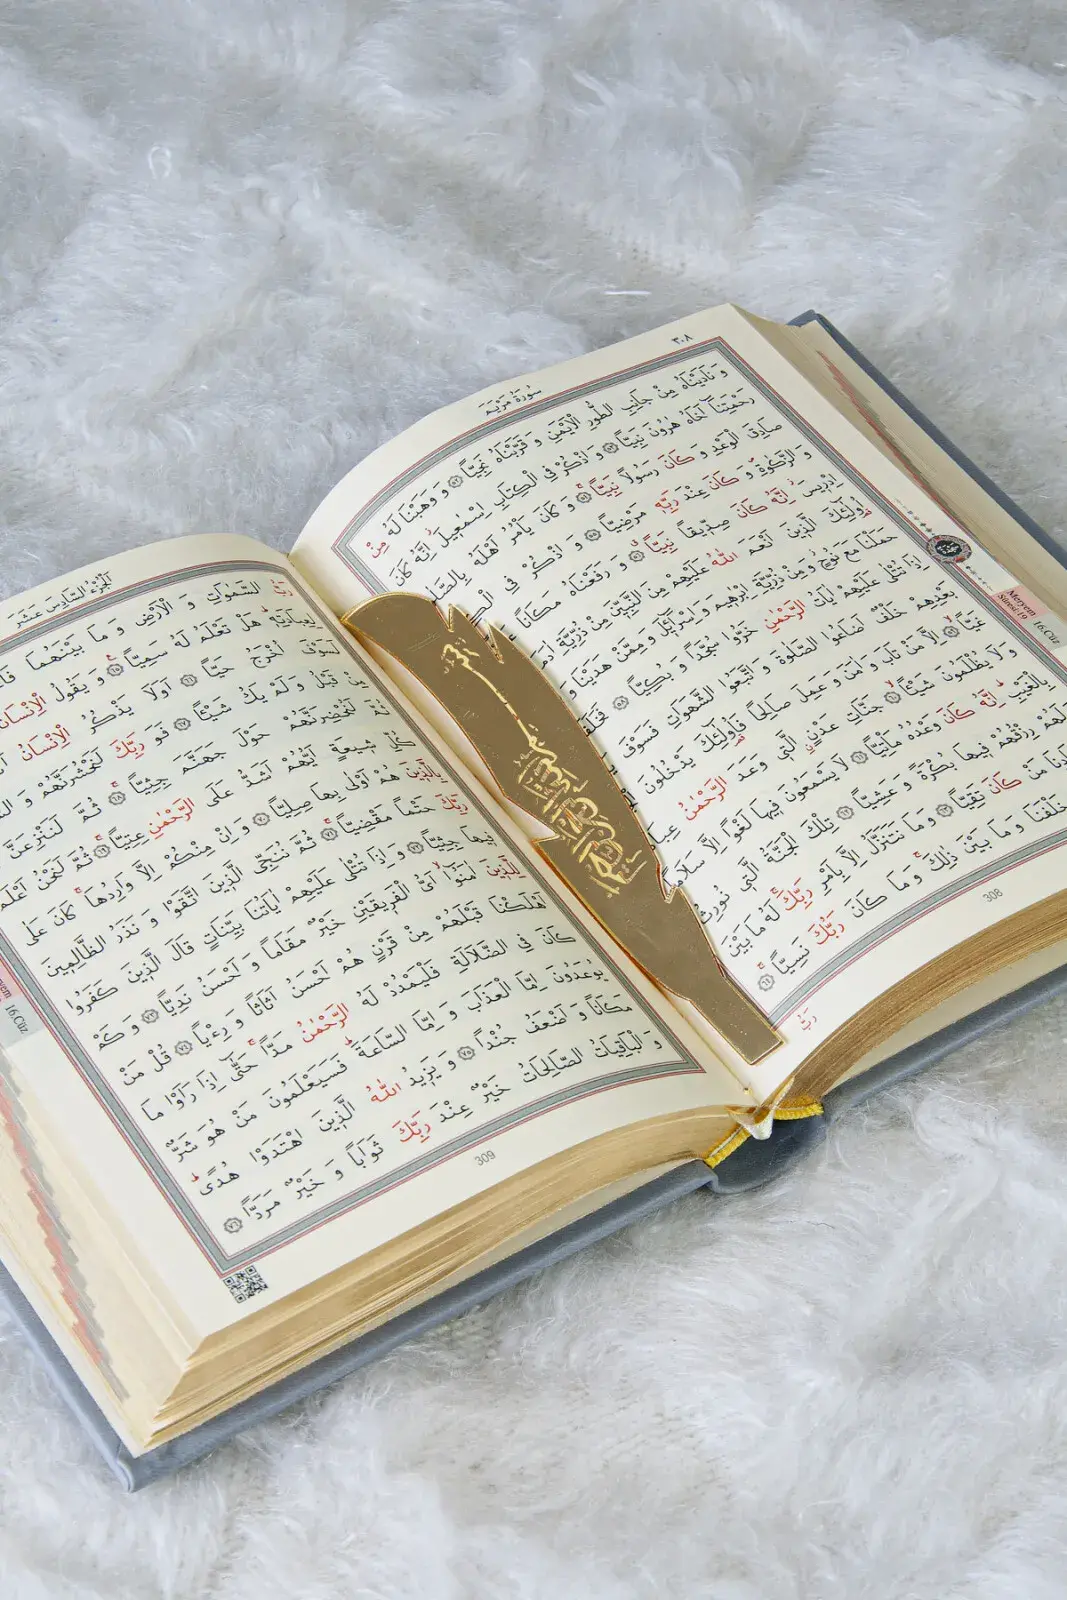 ٣٠٨
سُورَةُ مَرْيَمَ
وَنَادَيْنَاهُ مِنْ جَانِبِ الطُّورِ الْاَيْمَنِ وَقَرَّبْنَاهُ نَجِيًّا ﴿٥٢﴾ وَوَهَبْنَا لَهُ مِنْ
رَحْمَتِنَا اَخَاهُ هٰرُونَ نَبِيًّا ﴿٥٣﴾ وَاذْكُرْ فِي الْكِتَابِ اِسْمٰعِيلَ اِنَّهُ كَانَ
صَادِقَ الْوَعْدِ وَكَانَ رَسُولًا نَبِيًّا ﴿٥٤﴾ وَكَانَ يَأْمُرُ اَهْلَهُ
وَالزَّكٰوةِ وَكَانَ عِنْدَ رَبِّهِ مَرْضِيًّا ﴿٥٥﴾ وَاذْكُرْ فِي
اِدْرِيسَ اِنَّهُ كَانَ صِدِّيقًا نَبِيًّا ﴿٥٦﴾ وَرَفَعْنَاهُ مَكَانًا
اُولٰئِكَ الَّذِينَ اَنْعَمَ اللّٰهُ عَلَيْهِمْ مِنَ النَّبِيِّنَ مِنْ ذُرِّيَّةِ اٰدَمَ
حَمَلْنَا مَعَ نُوحٍ وَمِنْ ذُرِّيَّةِ اِبْرٰهِيمَ وَاِسْرَائِلَ وَمِمَّنْ هَدَيْنَا
اِذَا تُتْلٰى عَلَيْهِمْ اٰيَاتُ الرَّحْمٰنِ خَرُّوا سُجَّدًا وَبُكِيًّا ﴿٥٨﴾
بَعْدِهِمْ خَلْفٌ اَضَاعُوا الصَّلٰوةَ وَاتَّبَعُوا الشَّهَوَاتِ فَسَوْفَ
غَيًّا ﴿٥٩﴾ اِلَّا مَنْ تَابَ وَاٰمَنَ وَعَمِلَ صَالِحًا فَاُولٰئِكَ يَدْخُلُونَ
وَلَا يُظْلَمُونَ شَيْـًٔا ﴿٦٠﴾ جَنَّاتِ عَدْنٍ الَّتِي وَعَدَ الرَّحْمٰنُ
بِالْغَيْبِ اِنَّهُ كَانَ وَعْدُهُ مَأْتِيًّا ﴿٦١﴾ لَا يَسْمَعُونَ فِيهَا لَغْوًا اِلَّا سَلَامًا
رِزْقُهُمْ فِيهَا بُكْرَةً وَعَشِيًّا ﴿٦٢﴾ تِلْكَ الْجَنَّةُ الَّتِي نُورِثُ
مَنْ كَانَ تَقِيًّا ﴿٦٣﴾ وَمَا نَتَنَزَّلُ اِلَّا بِاَمْرِ رَبِّكَ لَهُ مَا بَيْنَ
خَلْفَنَا وَمَا بَيْنَ ذٰلِكَ وَمَا كَانَ رَبُّكَ نَسِيًّا ﴿٦٤﴾
رَبُّ
308
Meryem
Sûresi:19
16.Cüz
اَلْجُزْءُ السَّادِسَ عَشَرَ
رَبُّ السَّمٰوَاتِ وَالْاَرْضِ وَمَا بَيْنَهُمَا
لِعِبَادَتِهِ هَلْ تَعْلَمُ لَهُ سَمِيًّا ﴿٦٥﴾ وَيَقُولُ الْاِنْسَانُ
لَسَوْفَ اُخْرَجُ حَيًّا ﴿٦٦﴾ اَوَلَا يَذْكُرُ الْاِنْسَانُ
مِنْ قَبْلُ وَلَمْ يَكُ شَيْـًٔا ﴿٦٧﴾ فَوَرَبِّكَ لَنَحْشُرَنَّهُمْ
ثُمَّ لَنُحْضِرَنَّهُمْ حَوْلَ جَهَنَّمَ جِثِيًّا ﴿٦٨﴾ ثُمَّ لَنَنْزِعَنَّ
كُلِّ شِيعَةٍ اَيُّهُمْ اَشَدُّ عَلَى الرَّحْمٰنِ عِتِيًّا ﴿٦٩﴾ ثُمَّ لَنَحْنُ اَعْلَمُ
بِالَّذِينَ هُمْ اَوْلٰى بِهَا صِلِيًّا ﴿٧٠﴾ وَاِنْ مِنْكُمْ اِلَّا وَارِدُهَا كَانَ عَلٰى
رَبِّكَ حَتْمًا مَقْضِيًّا ﴿٧١﴾ ثُمَّ نُنَجِّي الَّذِينَ اتَّقَوْا وَنَذَرُ الظَّالِمِينَ
فِيهَا جِثِيًّا ﴿٧٢﴾ وَاِذَا تُتْلٰى عَلَيْهِمْ اٰيَاتُنَا بَيِّنَاتٍ قَالَ الَّذِينَ كَفَرُوا
لِلَّذِينَ اٰمَنُوا اَيُّ الْفَرِيقَيْنِ خَيْرٌ مَقَامًا وَاَحْسَنُ نَدِيًّا ﴿٧٣﴾ وَكَمْ
اَهْلَكْنَا قَبْلَهُمْ مِنْ قَرْنٍ هُمْ اَحْسَنُ اَثَاثًا وَرِءْيًا ﴿٧٤﴾ قُلْ مَنْ
كَانَ فِي الضَّلَالَةِ فَلْيَمْدُدْ لَهُ الرَّحْمٰنُ مَدًّا حَتّٰى اِذَا رَاَوْا مَا
يُوعَدُونَ اِمَّا الْعَذَابَ وَاِمَّا السَّاعَةَ فَسَيَعْلَمُونَ مَنْ هُوَ شَرٌّ
مَكَانًا وَاَضْعَفُ جُنْدًا ﴿٧٥﴾ وَيَزِيدُ اللّٰهُ الَّذِينَ اهْتَدَوْا هُدًى
وَالْبَاقِيَاتُ الصَّالِحَاتُ خَيْرٌ عِنْدَ رَبِّكَ ثَوَابًا وَخَيْرٌ مَرَدًّا ﴿٧٦﴾
309
16.Cüz